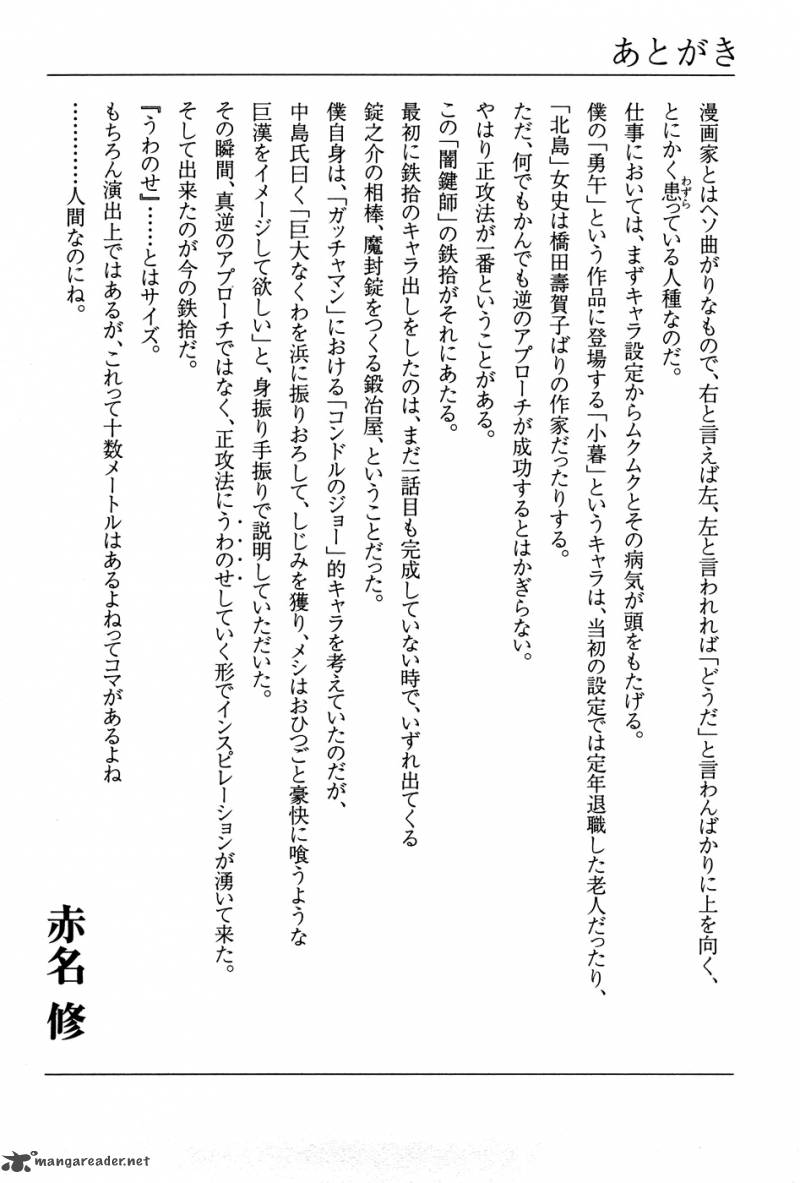 あとがき
漫画家とはヘソ曲がりなもので、右と言えば左、左と言われれば「どうだ」と言わんばかりに上を向く、
とにかく患っている人種なのだ。
わずら
仕事においては、まずキャラ設定からムクムクとその病気が頭をもたげる。
僕の「勇午」という作品に登場する「小暮」というキャラは、当初の設定では定年退職した老人だったり、
「北島」女史は橋田壽賀子ばりの作家だったりする。
ただ、何でもかんでも逆のアプローチが成功するとはかぎらない。
やはり正攻法が一番ということがある。
この「闇鍵師」の鉄拾がそれにあたる。
最初に鉄拾のキャラ出しをしたのは、まだ一話目も完成していない時で、いずれ出てくる
錠之介の相棒、魔封錠をつくる鍛冶屋、ということだった。
僕自身は、「ガッチャマン」における「コンドルのジョー」的キャラを考えていたのだが、
中島氏曰く「巨大なくわを浜に振りおろして、しじみを獲り、メシはおひつごと豪快に喰うような
巨漢をイメージして欲しい」と、身振り手振りで説明していただいた。
その瞬間、真逆のアプローチではなく、正攻法にうわのせしていく形でインスピレーションが湧いて来た。
そして出来たのが今の鉄拾だ。
『うわのせ』……とはサイズ。
もちろん演出上ではあるが、これって十数メートルはあるよねってコマがあるよね
…………人間なのにね。
赤名 修
mangareader.net